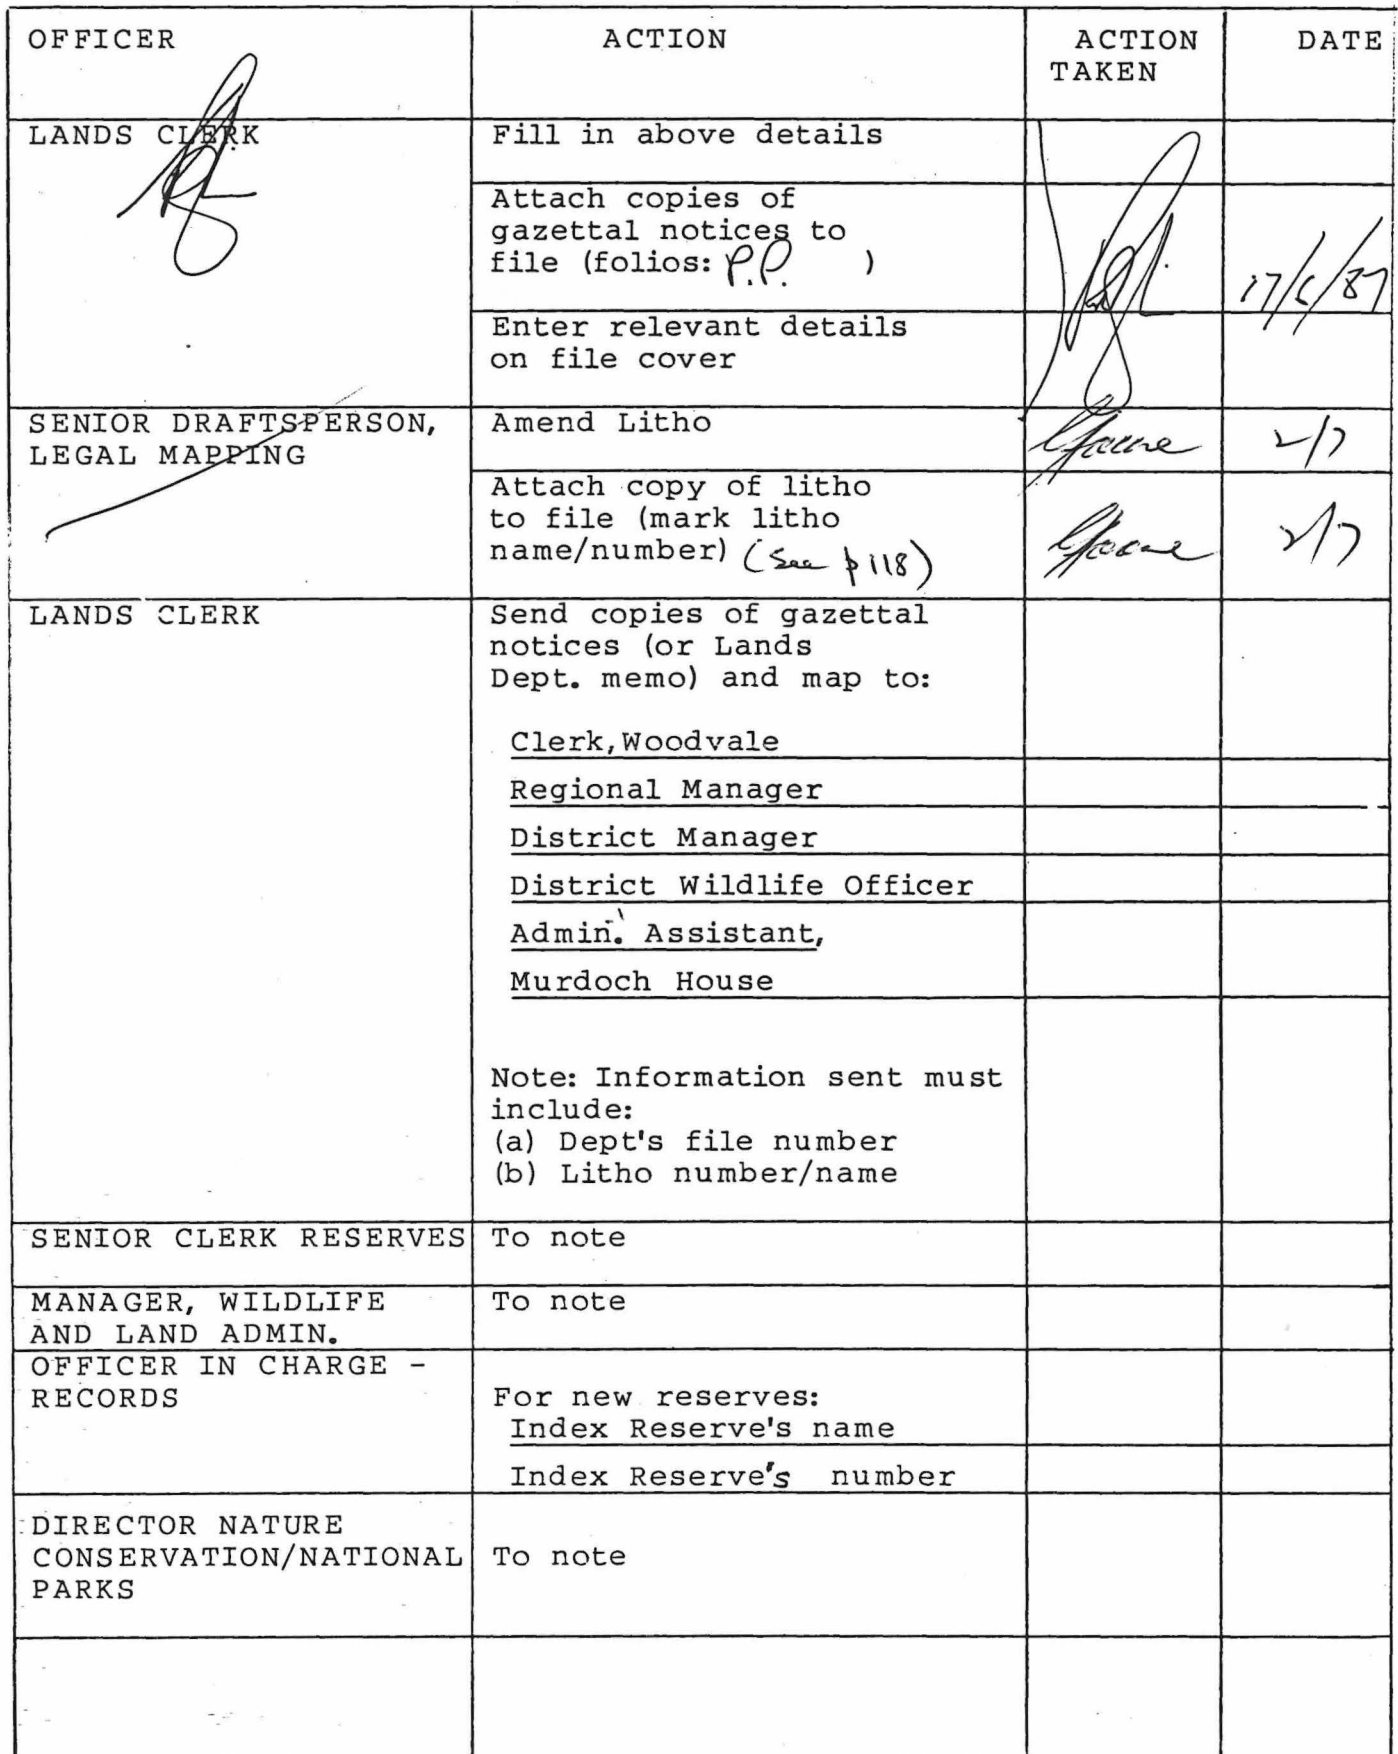 OFFICER ACTION ACTION DATE
TAKEN
LANDS CLERK Fill in above details
Attach copies of
gazettal notices to
file (folios: P.P. ) 17/6/87
Enter relevant details
on file cover
SENIOR DRAFTSPERSON, Amend Litho 2/7
LEGAL MAPPING
Attach copy of litho
to file (mark litho
name/number) (See p118) 2/7
LANDS CLERK Send copies of gazettal
notices (or Lands
Dept. memo) and map to:
Clerk, Woodvale
Regional Manager
District Manager
District Wildlife Officer
Admin. Assistant,
Murdoch House
Note: Information sent must
include:
(a) Dept's file number
(b) Litho number/name
SENIOR CLERK RESERVES To note
MANAGER, WILDLIFE To note
AND LAND ADMIN.
OFFICER IN CHARGE -
RECORDS For new reserves:
Index Reserve's name
Index Reserve's number
DIRECTOR NATURE
CONSERVATION/NATIONAL To note
PARKS